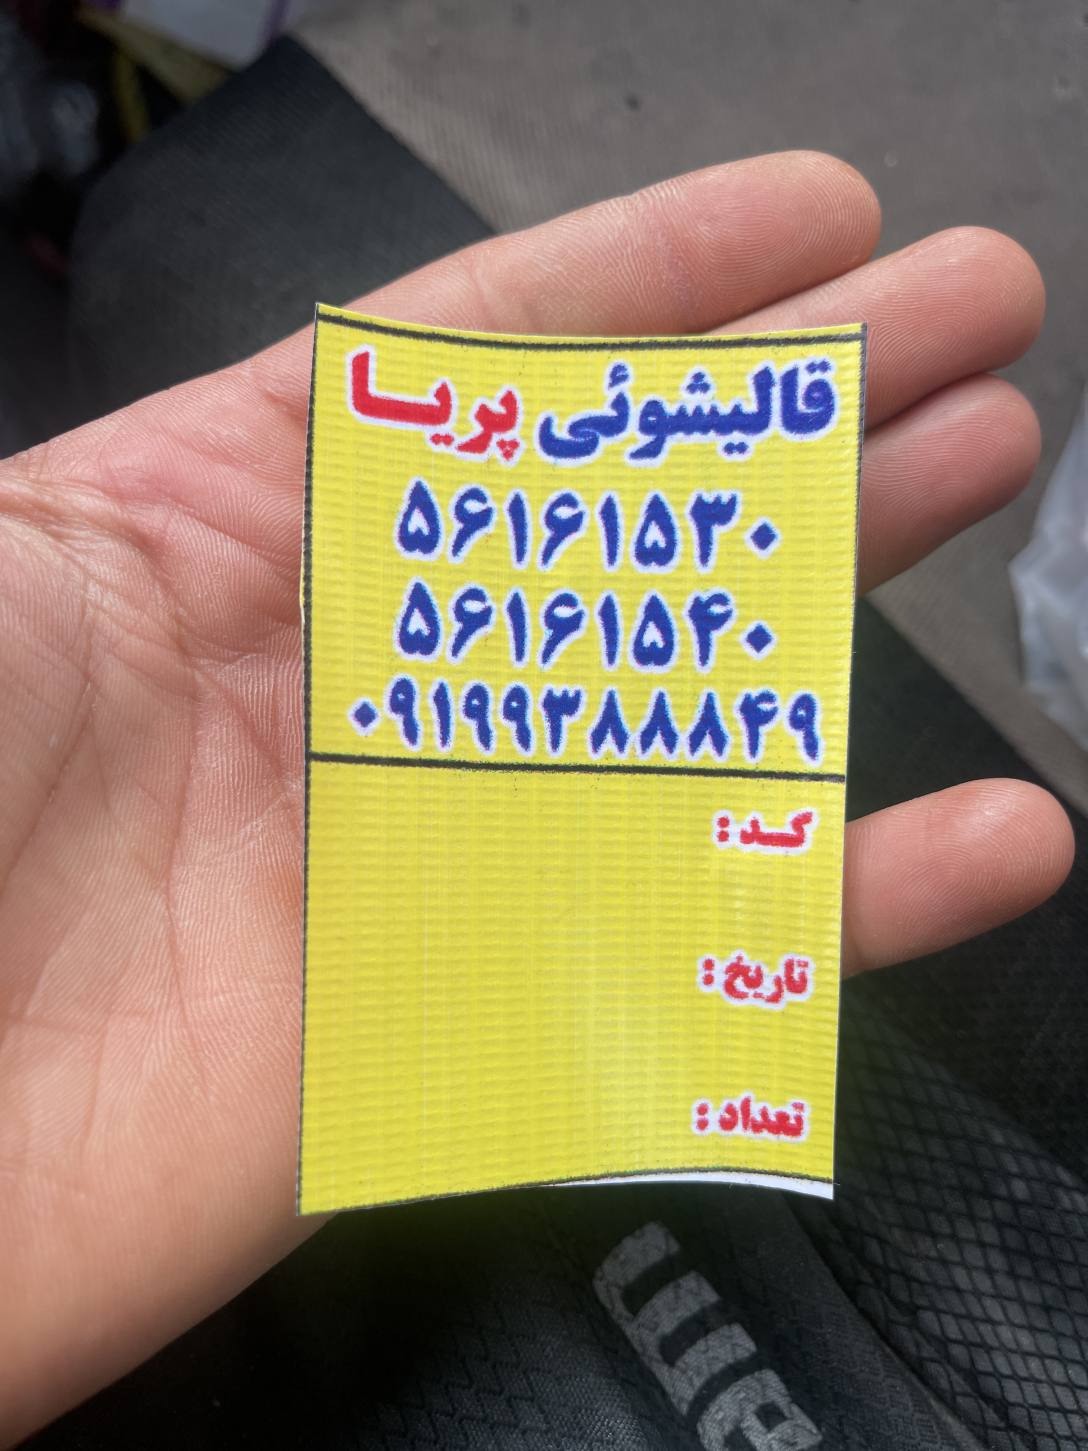 قالیشوئی پریا
۵۶۱۶۱۵۳۰
۵۶۱۶۱۵۴۰
۰۹۱۹۹۳۸۸۸۴۹
کد :
تاریخ :
تعداد :